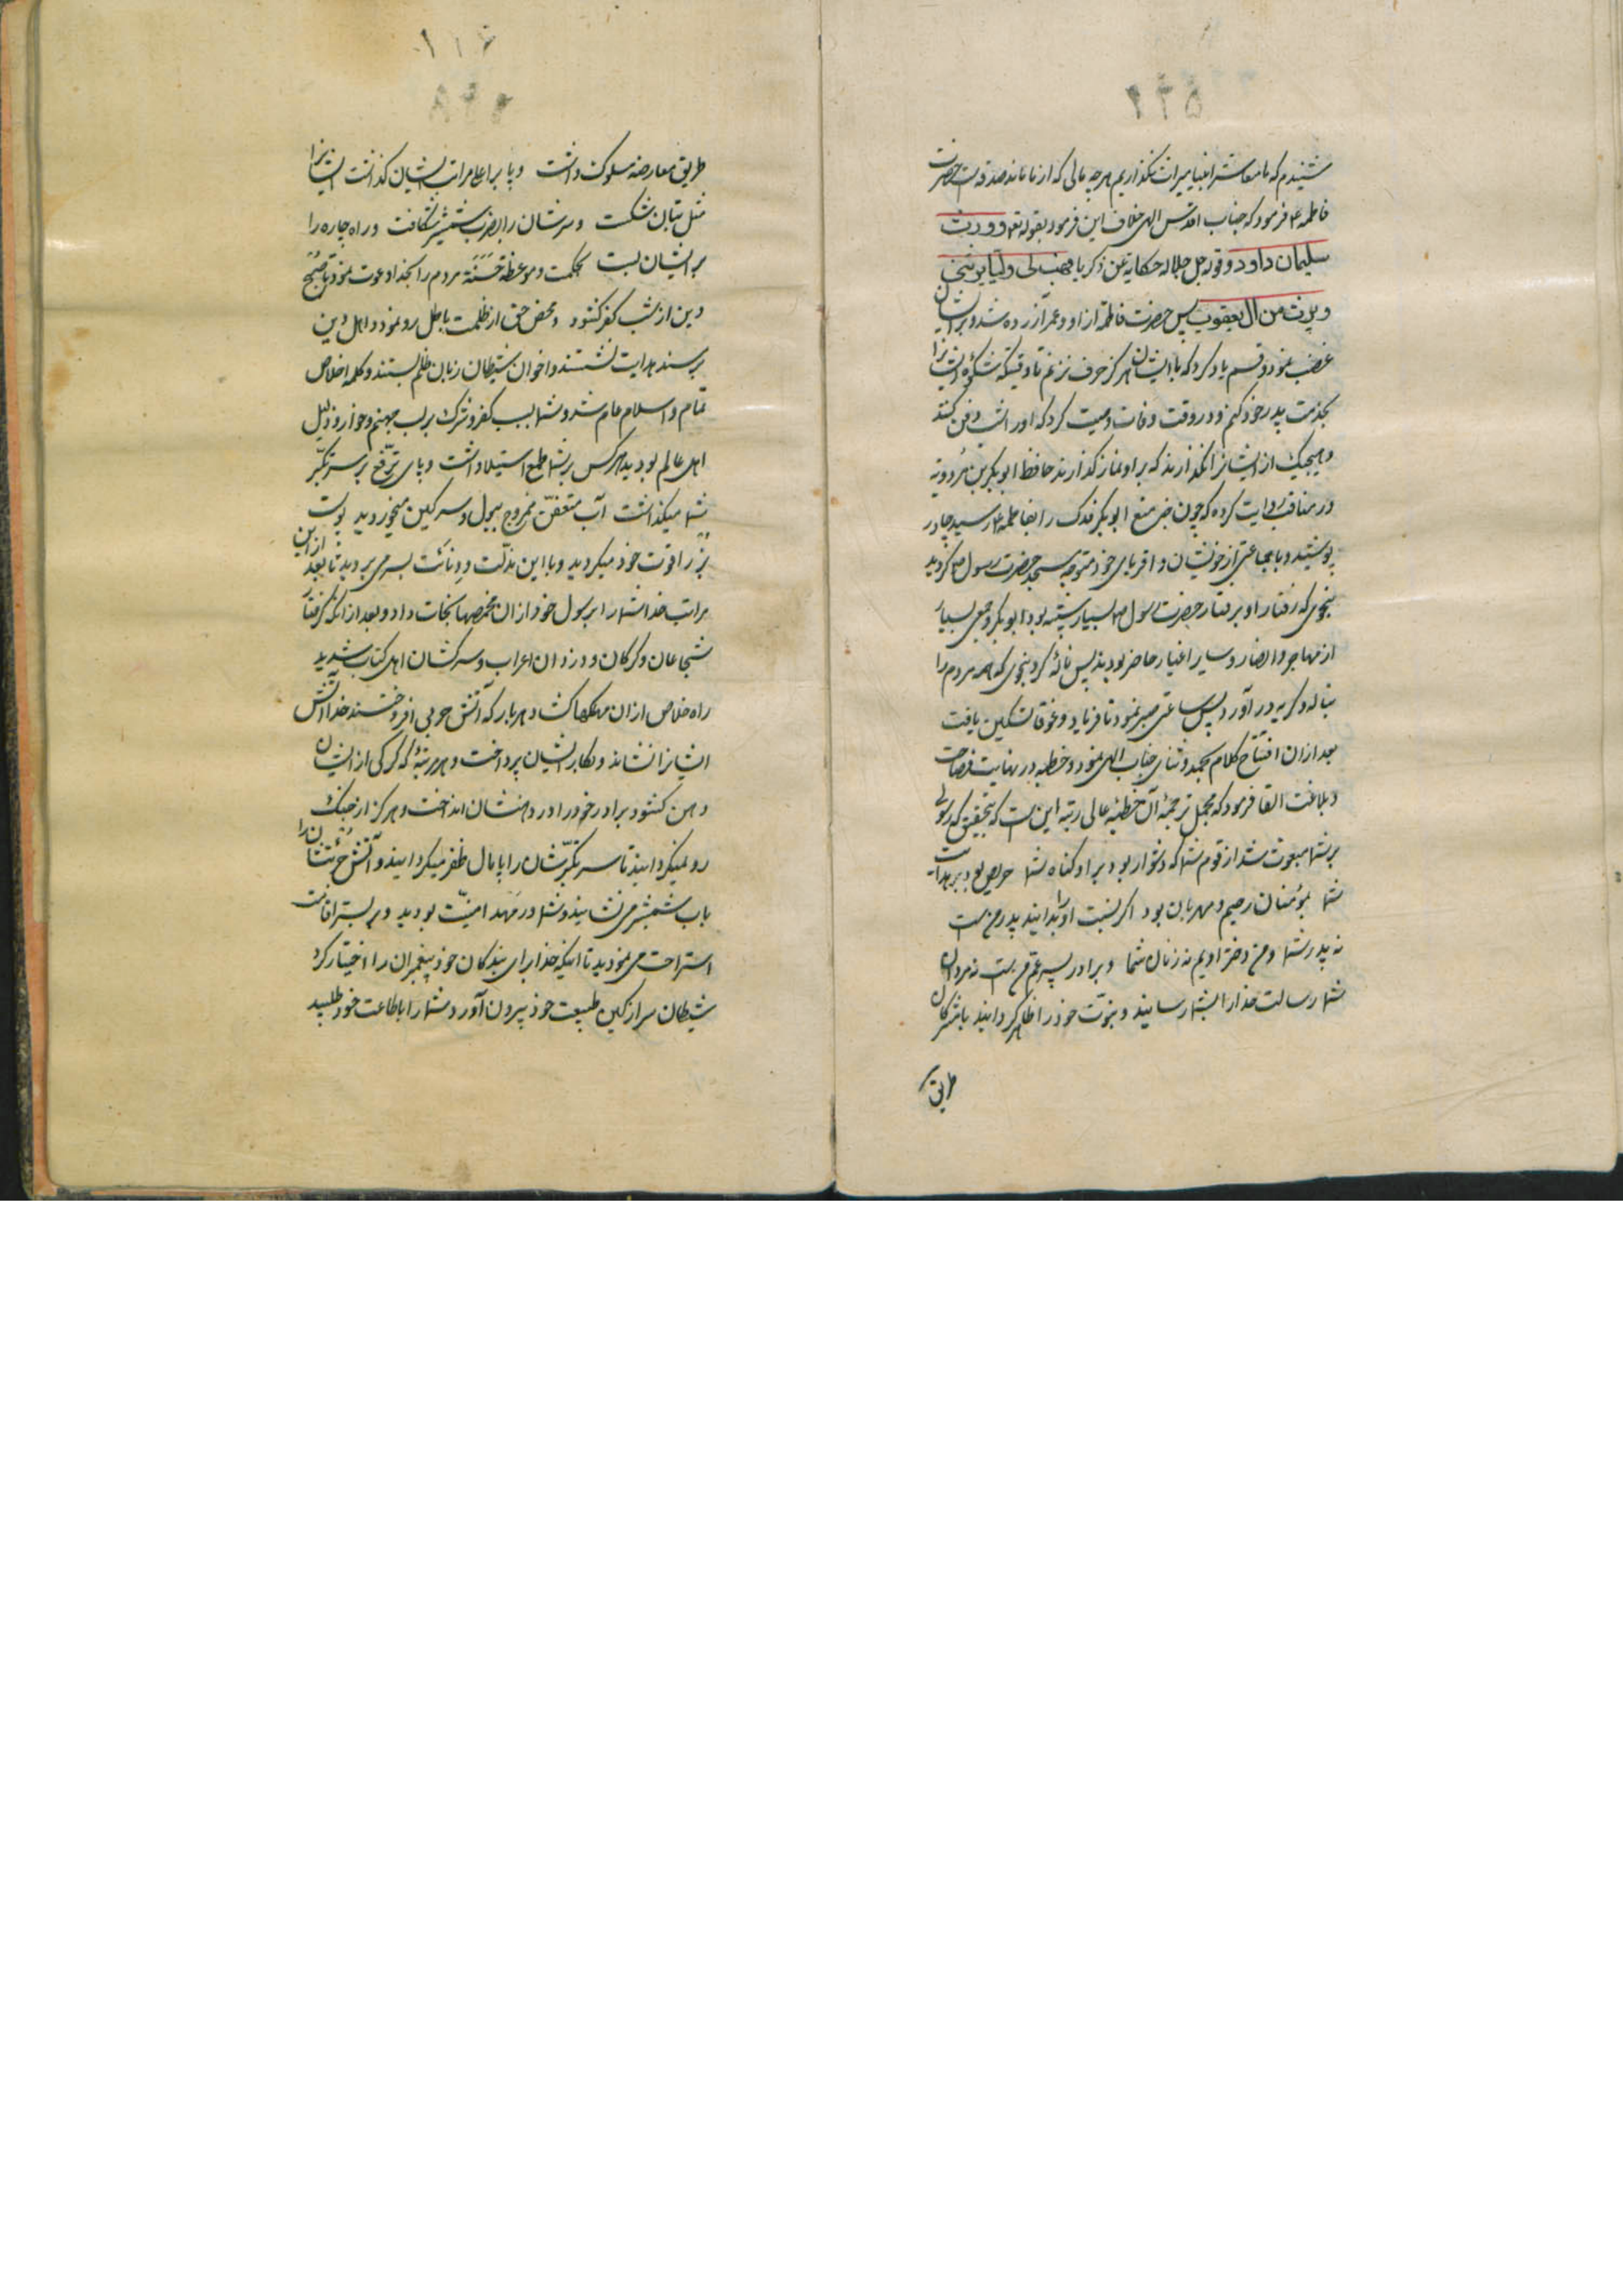 شنیدم که ما معاشر انبیا میراث نگذاریم هرچه مالی که از ما ماند صدقه است حضرت
فاطمه ع فرمود که جناب اقدس الهی خلاف این فرمود بقوله تع و ورث
سلیمان داود و قوله جل جلاله حکایة عن زکریا فهب لی ولیا یرثنی
و یرث من ال یعقوب پس حضرت فاطمه از او و عمر آزرده شد و بر ایشان
غضب نمود و قسم یاد کرد که با ایشان هرگز حرف نزنم تا وقتیکه شکوه ایشانرا
بخدمت پدر خود کنم و در وقت وفات وصیت کرد که او را شب دفن کنند
و هیچیک از ایشانرا نگذارند که بر او نماز گذارند حافظ ابوبکر بن مردویه
در مناقب روایت کرده که چون خبر منع ابوبکر فدک را بفاطمه ع رسید چادر
پوشید و با جماعتی از خویشان و اقربای خود متوجه مسجد حضرت رسول ص گردید
بنحوی که رفتار او برفتار حضرت رسول ص بسیار شبیه بود ابوبکر و جمعی بسیار
از مهاجر و انصار و سایر اغیار حاضر بودند پس ناله کرد بنحوی که همه مردم را
بناله و گریه در آورد پس ساعتی صبر نمود تا فریاد و غوغا تسکین یافت
بعد از ان افتتاح کلام بحمد و ثنای جناب الهی نمود و خطبه در نهایت فصاحت
و بلاغت القا فرمود که مجمل ترجمۀ آن خطبۀ عالی رتبه این است که بتحقیق که رسولی
بر شما مبعوث شد از قوم شما که دشوار بود بر او گناه شما حریص بود بر هدایت
شما بمؤمنان رحیم و مهربان بود اگر نسبت او را بدانید پدر من است
نه پدر شما و من دختر اویم نه زنان شما و برادر پسر عم من است نه مردان
شما رسالت خدا را بشما رسانید و نبوّت خود را ظاهر گردانید با مشرکان
طریق
۶۱۱
طریق معارضه مسلوک داشت و پا بر اعلی مراتب ایشان گذاشت ایشانرا
مثل بتان شکست و سرشان را بضرب شمشیر شکافت و راه چاره را
بر ایشان بست بحکمت و موعظه حَسَنَة مردم را بخدا دعوت نمود تا صُبح
دین از شب کفر گشود و محض حق از ظلمت باطل رو نمود و اهل دین
بر سند هدایت نشستند و اخوان شیطان زبان ظلم بستند و کلمه اخلاص
تمام و اسلام عام شد و شما بسبب کفر و شرک بر لب جهنم و خوار و ذلیل
اهل عالم بودید هر کس بر شما طمع استیلا داشت و پای ترفّع بر سر تکبّر
شما میگذاشت آب متعفّن ممزوج ببول و سرگین میخوردید پوست
بُز را قوت خود میکردید و با این مذلّت و دنائت بسر می بردید تا بعد از این
مراتب خدا شما را برسول خود از ان مخمصها نجات داد و بعد از انکه گرفتار
شجاعان و گرگان و دزدان اعراب و سرکشان اهل کتاب شدید
راه خلاص از ان مهلکها گشاد هر بار که آتش حربی افروختند خدا آتش
ایشانرا نشاند و بکار ایشان پرداخت و هر مرتبۀ که گرگی از ایشان
دهن گشود برادر خود را در دهنشان انداخت و هرگز از جنگ
رو نمیگردانید تا سر تکبّرشان را پامال ظفر میگردانید و آتش جُرئتشان را
بآب شمشیر می نشانید و شما در مَهد امنیّت بودید و بر بستر اقامت
استراحت می نمودید تا اینکه خدا برای بندگان خود پیغمبران را اختیار کرد
شیطان سر از کمین طبیعت خود بیرون آورد و شما را باطاعت خود طلبید